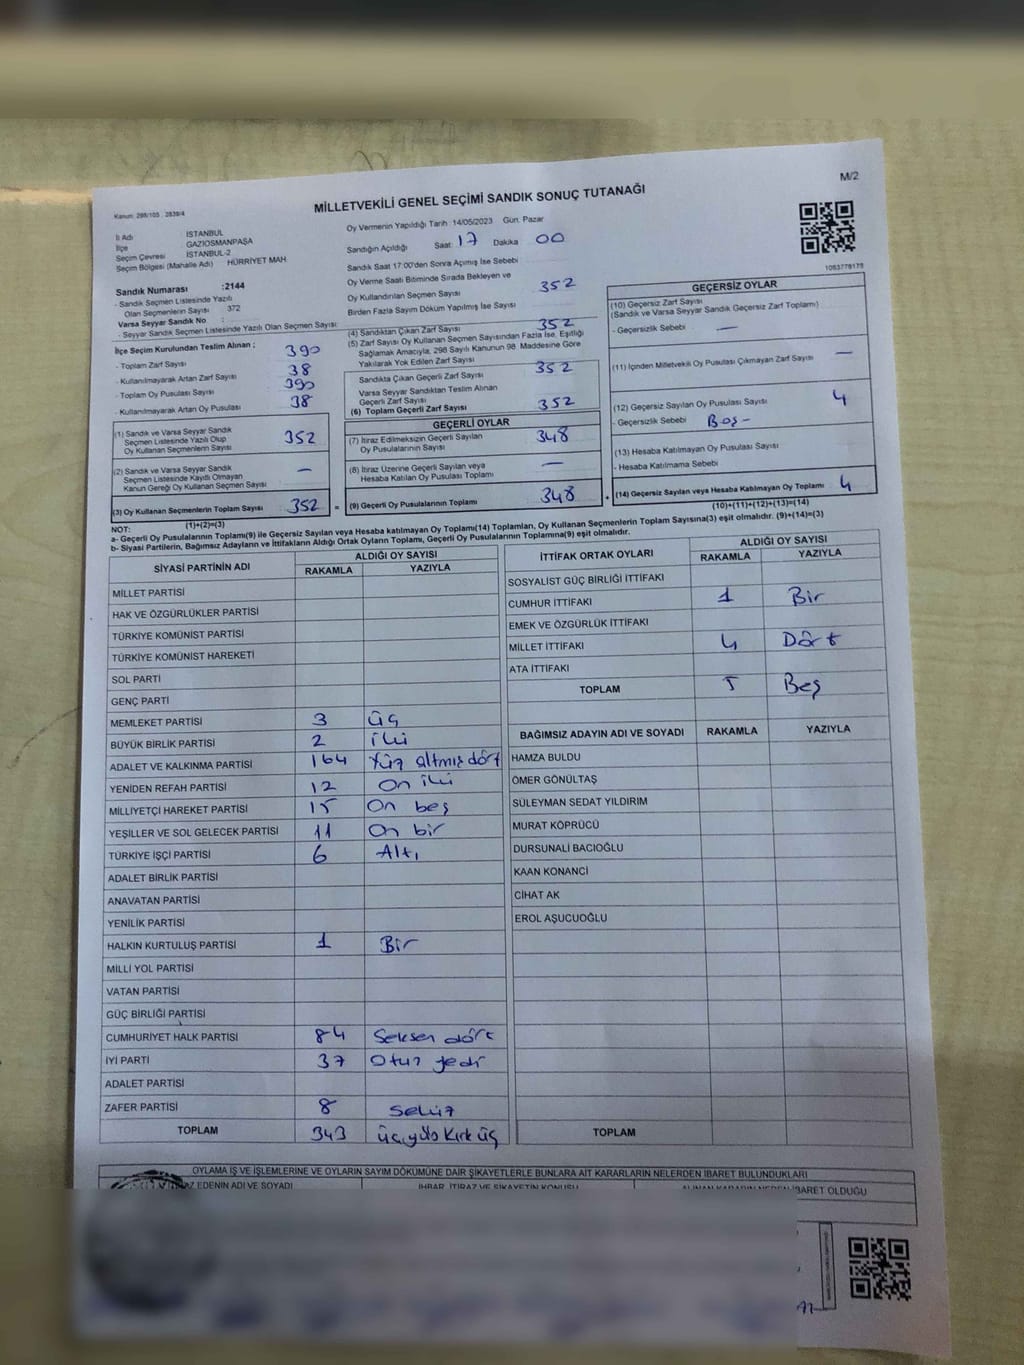 M/2
Kanun: 298/105 2839/4
MİLLETVEKİLİ GENEL SEÇİMİ SANDIK SONUÇ TUTANAĞI
İl Adı İSTANBUL
İlçe GAZİOSMANPAŞA
Seçim Çevresi İSTANBUL-2
Seçim Bölgesi (Mahalle Adı) HÜRRİYET MAH
Sandık Numarası :2144
- Sandık Seçmen Listesinde Yazılı
Olan Seçmenlerin Sayısı 372
Varsa Seyyar Sandık No :
- Seyyar Sandık Seçmen Listesinde Yazılı Olan Seçmen Sayısı:
İlçe Seçim Kurulundan Teslim Alınan ;
- Toplam Zarf Sayısı 390
- Kullanılmayarak Artan Zarf Sayısı 38
- Toplam Oy Pusulası Sayısı 390
- Kullanılmayarak Artan Oy Pusulası 38
(1) Sandık ve Varsa Seyyar Sandık
Seçmen Listesinde Yazılı Olup
Oy Kullanan Seçmenlerin Sayısı 352
(2) Sandık ve Varsa Seyyar Sandık
Seçmen Listesinde Kayıtlı Olmayan
Kanun Gereği Oy Kullanan Seçmen Sayısı —
(3) Oy Kullanan Seçmenlerin Toplam Sayısı 352 =
(1)+(2)=(3)
Oy Vermenin Yapıldığı Tarih : 14/05/2023 Gün: Pazar
Sandığın Açıldığı Saat: 17 Dakika 00
Sandık Saat 17:00'den Sonra Açılmış İse Sebebi
Oy Verme Saati Bitiminde Sırada Bekleyen ve
Oy Kullandırılan Seçmen Sayısı 352
Birden Fazla Sayım Döküm Yapılmış İse Sayısı
(4) Sandıktan Çıkan Zarf Sayısı 352
(5) Zarf Sayısı Oy Kullanan Seçmen Sayısından Fazla İse, Eşitliği
Sağlamak Amacıyla, 298 Sayılı Kanunun 98. Maddesine Göre
Yakılarak Yok Edilen Zarf Sayısı
Sandıkta Çıkan Geçerli Zarf Sayısı 352
Varsa Seyyar Sandıktan Teslim Alınan
Geçerli Zarf Sayısı
(6) Toplam Geçerli Zarf Sayısı 352
GEÇERLİ OYLAR
(7) İtiraz Edilmeksizin Geçerli Sayılan
Oy Pusulalarının Sayısı 348
(8) İtiraz Üzerine Geçerli Sayılan veya
Hesaba Katılan Oy Pusulası Toplamı —
(9) Geçerli Oy Pusulalarının Toplamı 348 +
1063778179
GEÇERSİZ OYLAR
(10) Geçersiz Zarf Sayısı
(Sandık ve Varsa Seyyar Sandık Geçersiz Zarf Toplamı)
- Geçersizlik Sebebi —
(11) İçinden Milletvekili Oy Pusulası Çıkmayan Zarf Sayısı —
(12) Geçersiz Sayılan Oy Pusulası Sayısı 4
- Geçersizlik Sebebi Boş-
(13) Hesaba Katılmayan Oy Pusulası Sayısı
- Hesaba Katılmama Sebebi
(14) Geçersiz Sayılan veya Hesaba Katılmayan Oy Toplamı 4
(10)+(11)+(12)+(13)=(14)
NOT:
a- Geçerli Oy Pusulalarının Toplamı(9) ile Geçersiz Sayılan veya Hesaba katılmayan Oy Toplamı(14) Toplamları, Oy Kullanan Seçmenlerin Toplam Sayısına(3) eşit olmalıdır. (9)+(14)=(3)
b- Siyasi Partilerin, Bağımsız Adayların ve İttifakların Aldığı Ortak Oyların Toplamı, Geçerli Oy Pusulalarının Toplamına(9) eşit olmalıdır.
SİYASİ PARTİNİN ADI ALDIĞI OY SAYISI
RAKAMLA YAZIYLA
MİLLET PARTİSİ
HAK VE ÖZGÜRLÜKLER PARTİSİ
TÜRKİYE KOMÜNİST PARTİSİ
TÜRKİYE KOMÜNİST HAREKETİ
SOL PARTİ
GENÇ PARTİ
MEMLEKET PARTİSİ 3 üç
BÜYÜK BİRLİK PARTİSİ 2 iki
ADALET VE KALKINMA PARTİSİ 164 Yüz altmış dört
YENİDEN REFAH PARTİSİ 12 On iki
MİLLİYETÇİ HAREKET PARTİSİ 15 On beş
YEŞİLLER VE SOL GELECEK PARTİSİ 11 On bir
TÜRKİYE İŞÇİ PARTİSİ 6 Altı
ADALET BİRLİK PARTİSİ
ANAVATAN PARTİSİ
YENİLİK PARTİSİ
HALKIN KURTULUŞ PARTİSİ 1 Bir
MİLLİ YOL PARTİSİ
VATAN PARTİSİ
GÜÇ BİRLİĞİ PARTİSİ
CUMHURİYET HALK PARTİSİ 84 Seksen dört
İYİ PARTİ 37 Otuz yedi
ADALET PARTİSİ
ZAFER PARTİSİ 8 Sekiz
TOPLAM 343 üçyüz Kırk üç
İTTİFAK ORTAK OYLARI ALDIĞI OY SAYISI
RAKAMLA YAZIYLA
SOSYALİST GÜÇ BİRLİĞİ İTTİFAKI
CUMHUR İTTİFAKI 1 Bir
EMEK VE ÖZGÜRLÜK İTTİFAKI
MİLLET İTTİFAKI 4 Dört
ATA İTTİFAKI
TOPLAM 5 Beş
BAĞIMSIZ ADAYIN ADI VE SOYADI RAKAMLA YAZIYLA
HAMZA BULDU
ÖMER GÖNÜLTAŞ
SÜLEYMAN SEDAT YILDIRIM
MURAT KÖPRÜCÜ
DURSUNALİ BACIOĞLU
KAAN KONANCİ
CİHAT AK
EROL AŞUCUOĞLU
TOPLAM
OYLAMA İŞ VE İŞLEMLERİNE VE OYLARIN SAYIM DÖKÜMÜNE DAİR ŞİKAYETLERLE BUNLARA AİT KARARLARIN NELERDEN İBARET BULUNDUKLARI
EDENİN ADI VE SOYADI İHBAR, İTİRAZ VE ŞİKAYETİN KONUSU ALINAN KARARIN NEDEN İBARET OLDUĞU